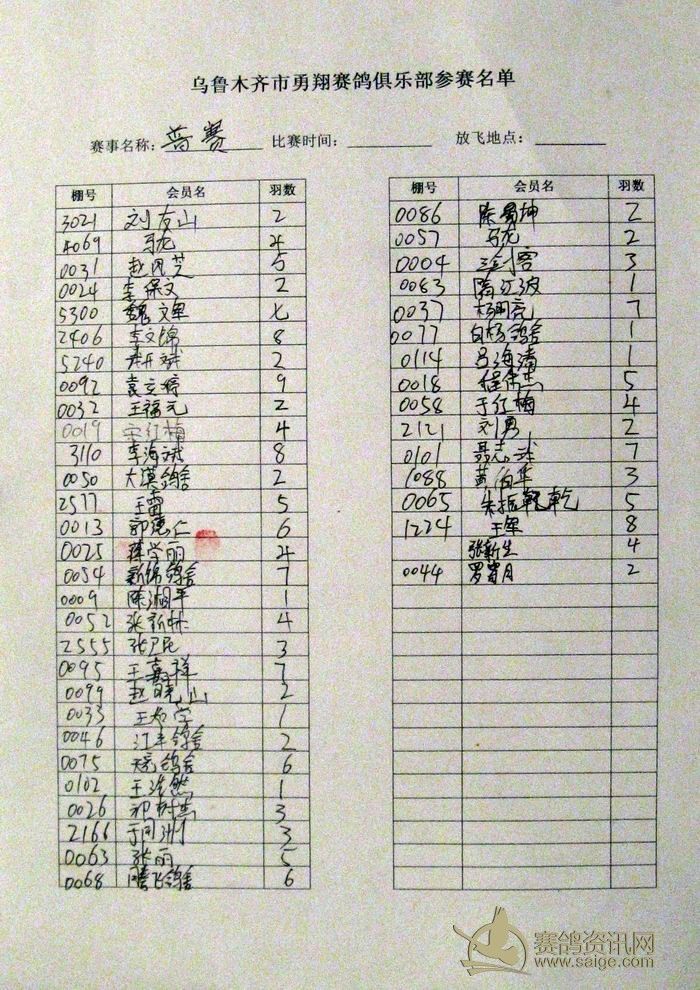 乌鲁木齐市勇翔赛鸽俱乐部参赛名单
赛事名称: 普赛 比赛时间: 放飞地点:
棚号 会员名 羽数
3021 刘友山 2
4069 马龙 4
0031 赵凤芝 5
0024 李保文 2
5300 魏文军 七
2406 李文锦 8
5240 斌 2
0092 袁文婷 9
0032 王福元 2
0019 宋红梅 4
3110 李海斌 8
0050 大漠鸽舍 2
2577 王雷 5
0013 郭德仁 6
0025 蒋学丽 4
0054 新锦鸽舍 7
0009 陈湘平 1
0052 张新林 4
2555 张卫民 3
0095 王嘉祥 7
0099 赵晓山 2
0033 王学 1
0046 江丰鸽舍 2
0075 鸽舍 6
0102 王浩然 1
0026 树 3
2166 于同洲 3
0063 张丽 5
0068 腾飞鸽舍 6
棚号 会员名 羽数
0086 陈蜀坤 2
0057 马龙 2
0004 三剑客 3
0083 江波 1
0037 杨明亮 7
0077 白杨鸽舍 1
0114 吕海清 1
0018 程保杰 5
0058 于红梅 4
2121 刘勇 2
0101 聂志武 7
1088 黄伯华 3
0065 朱振乾 乾 5
1224 王军 8
张新生 4
0044 罗月 2
赛鸽资讯网
www.saige.com